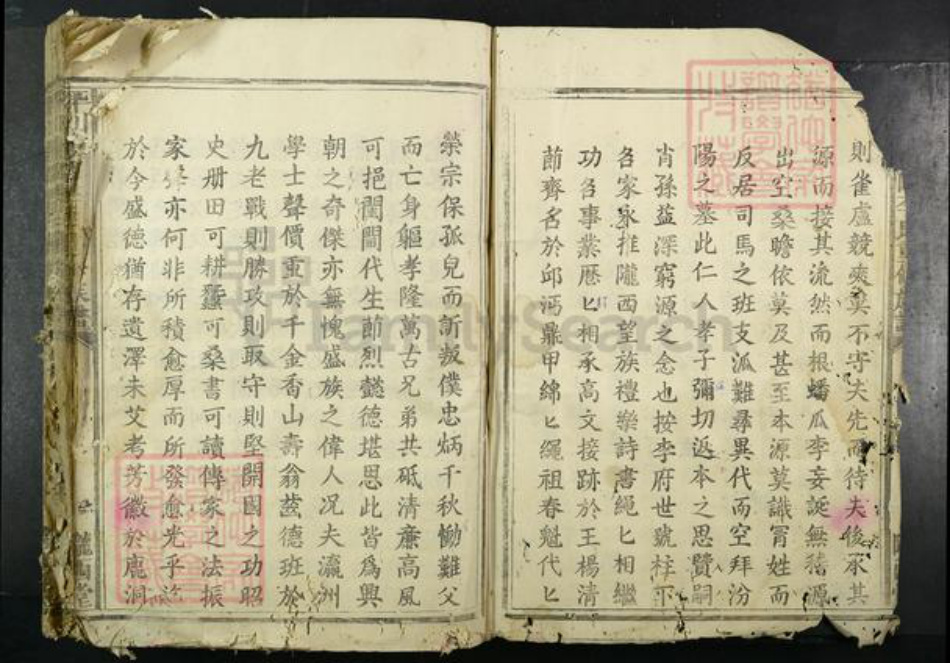 則雀虛競爽莫不守夫先而待夫後承其
源而接其流然而根蟠瓜李妄誕無稽源
出空桑瞻依莫及甚至本源莫識冒姓而
反居司馬之班支派難尋異代而空拜汾
陽之墓此仁人孝子彌切返本之思賢嗣
肖孫益深窮源之念也按李府世號柱下
名家永推隴西望族禮樂詩書繩匕相繼
功名事業歷匕相承高文接跡於王楊清
節齊名於邱沔鼎甲綿匕繩祖春魁代匕
榮宗保孤兒而訴叛僕忠炳千秋慟難父
而亡身軀孝隆萬古兄弟共砥清廉高風
可挹閨閫代生節烈懿德堪思此皆為興
朝之奇傑亦無愧盛族之偉人况夫瀛洲
學士聲價重於千金香山壽翁耆德班於
九老戰則勝攻則取守則堅開國之功昭
史册田可耕蠶可桑書可讀傳家之法振
家聲亦何非所積愈厚而所發愈光乎迄
於今盛德猶存遺澤未艾考芳徽於鹿洞
FamilySearch